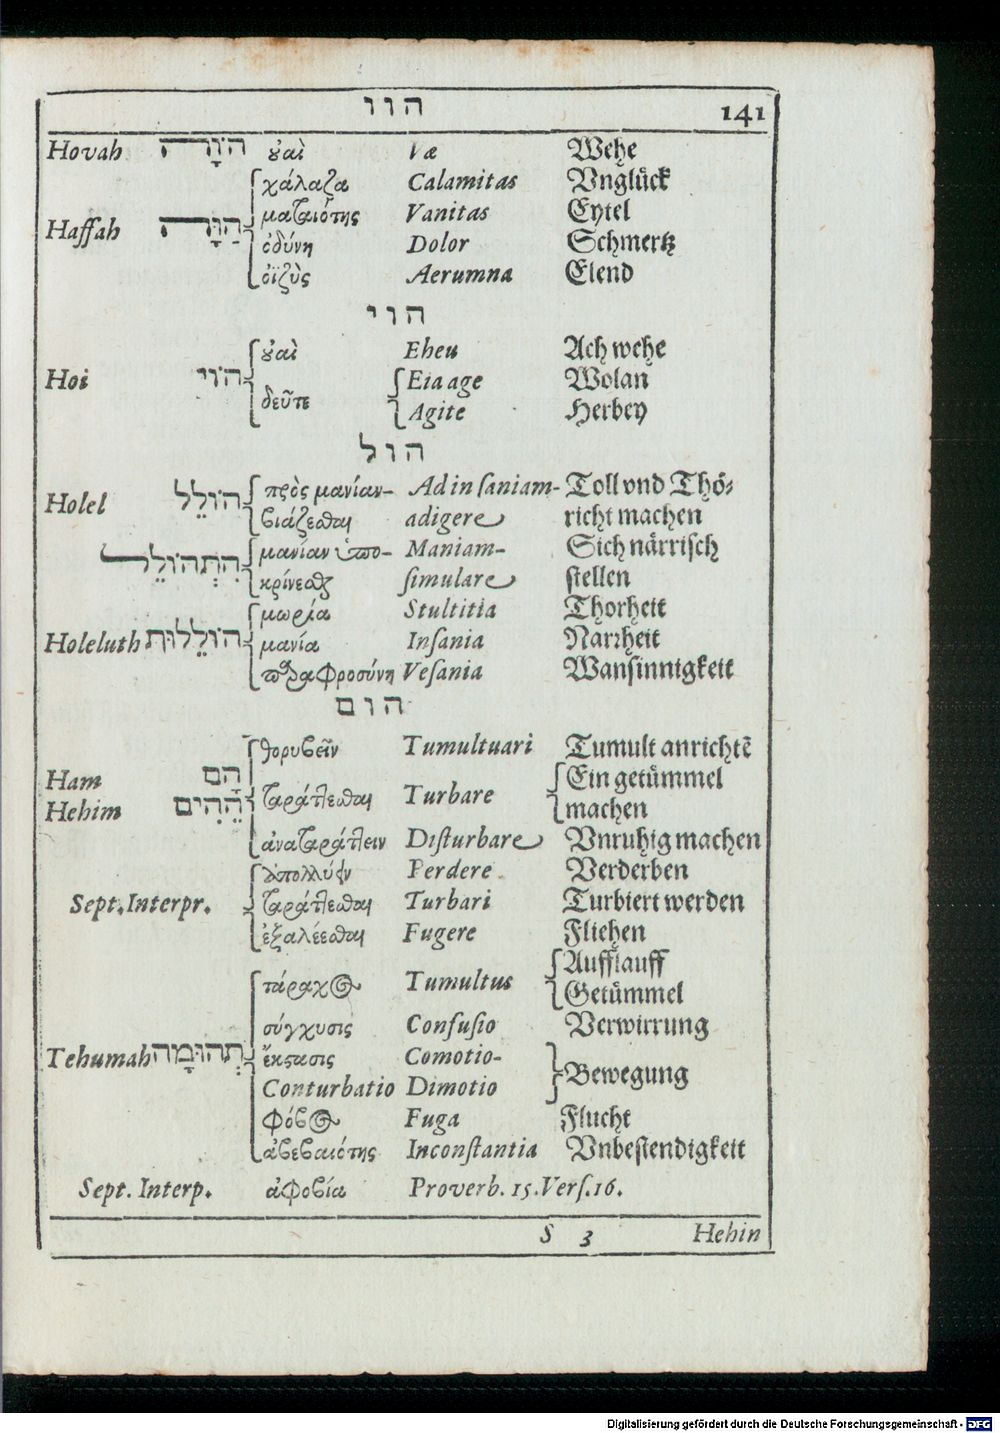 הוו 141
Hovah הֹוָה ȣαὶ Væ Wehe
χάλαζα Calamitas Vnglück
ματαιότης Vanitas Eytel
Haſſah הַוָּה ὀδύνη Dolor Schmertz
ὀϊζὺς Aerumna Elend
הוי
ȣαὶ Eheu Ach wehe
Hoi הֹוי δεῦτε Eia age Wolan
Agite Herbey
הול
Holel הֹולֵל πρὸς μανίαν- Ad in ſaniam- Toll vnd Thö⸗
βιάζεσθαι adigere richt machen
הִתְהֹולֵל μανίαν ὑπο- Maniam- Sich närriſch
κρίνεσθαι ſimulare ſtellen
μωρία Stultitia Thorheit
Holeluth הֹולֵלוּת μανία Inſania Narrheit
παραφροσύνη Veſania Wanſinnigkeit
הום
θορυβεῖν Tumultuari Tumult anrichtē
Ham הָם Ein getümmel
Hehim הֵהִים ταράττεσθαι Turbare machen
ἀναταράττειν Diſturbare Vnruhig machen
ἀπολλύειν Perdere Verderben
Sept. Interpr. ταράττεσθαι Turbari Turbiert werden
ἐξαλέεσθαι Fugere Fliehen
τάραχος Tumultus Auffläuff
Getümmel
σύγχυσις Confuſio Verwirrung
Tehumah תְהוּמָה ἔκστασις Comotio-
Conturbatio Dimotio Bewegung
φόβος Fuga Flucht
ἀβεβαιότης Inconſtantia Vnbeſtendigkeit
Sept. Interp. ἀφοβία Proverb. 15. Verſ. 16.
S 3 Hehin
Digitalisierung gefördert durch die Deutsche Forschungsgemeinschaft - DFG